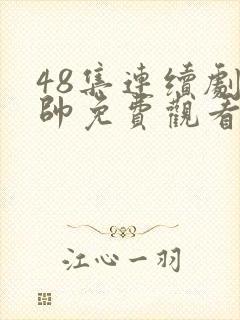 48集連續劇
帥免費觀看
江心一羽